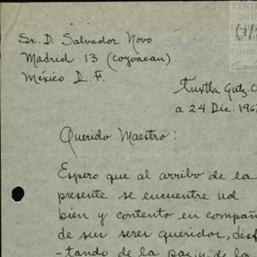 Sr. D. Salvador Novo
Madrid 13 (Coyoacan)
México D. F.
Tuxtla Gutz. C
a 24 Dic. 196
Querido Maestro:
Espero que al arribo de la
presente se encuentre ud
bien y contento en compañ
de sus seres queridos, disf
-tando de la paz y de la